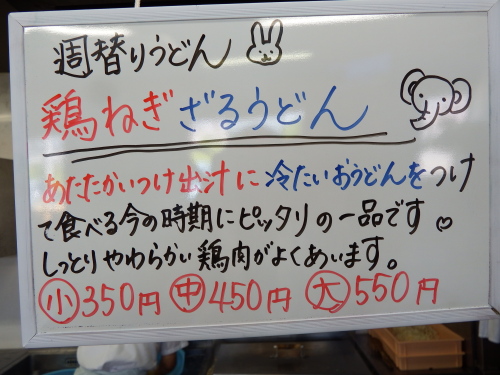 週替りうどん
鶏ねぎざるうどん
あたたかいつけ出汁に冷たいおうどんをつけ
て食べる今の時期にピッタリの一品です♡
しっとりやわらかい鶏肉がよくあいます。
小350円 中450円 大550円